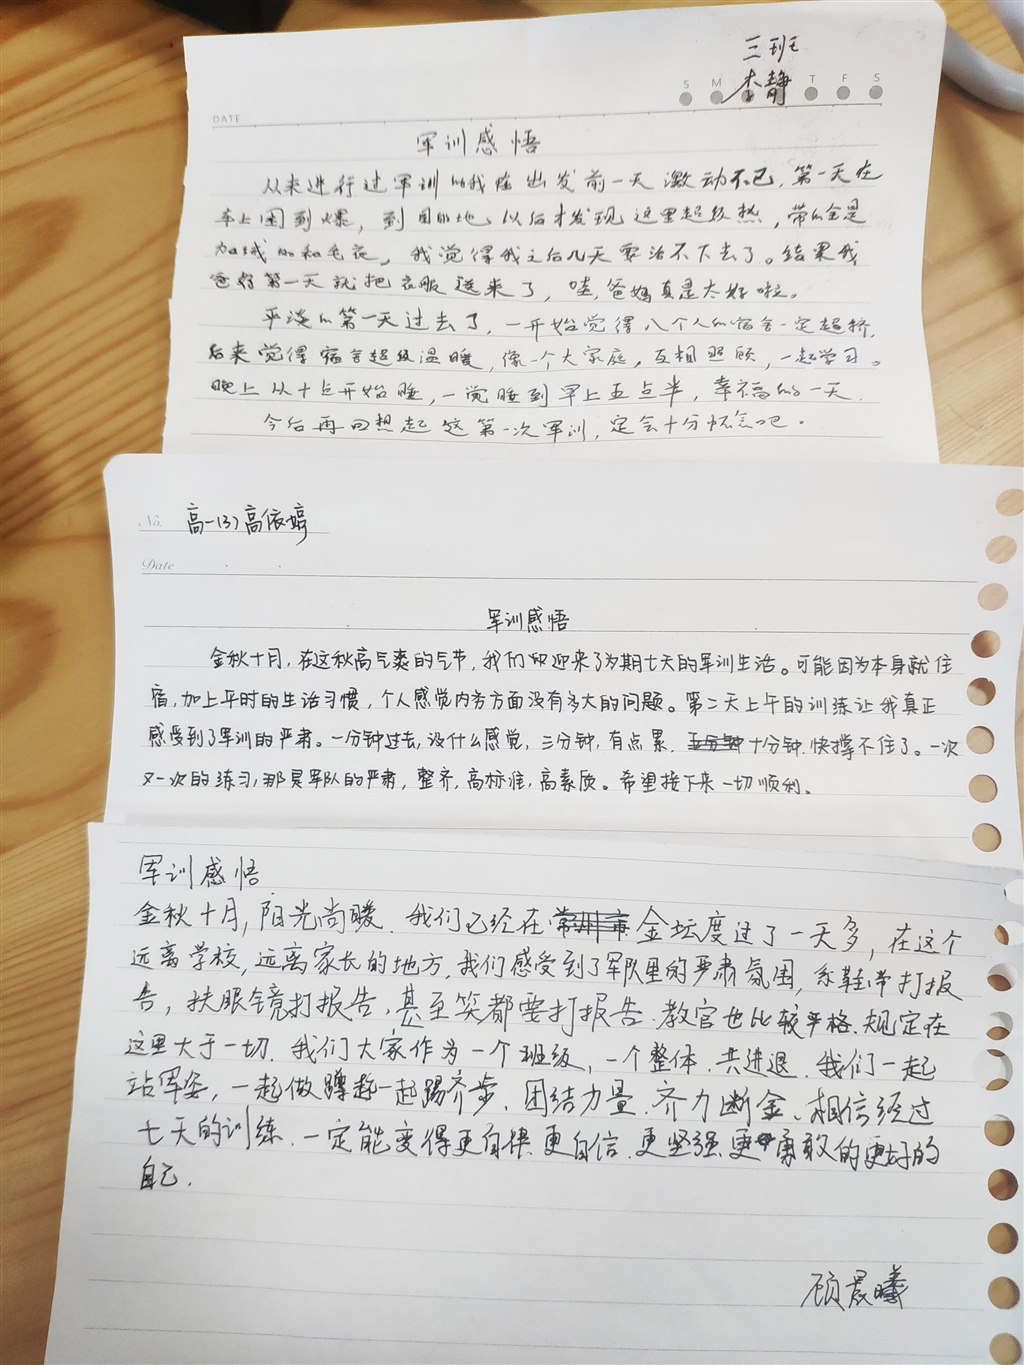 三班
S M T F S
李静
DATE
军训感悟
从未进行过军训的我在出发前一天激动不已，第一天在
车上困到爆，到目的地以后才发现这里超级热，带的全是
加绒的和毛衣，我觉得我之后几天要活不下去了。结果我
爸妈第一天就把衣服送来了，哇，爸妈真是太好啦。
平淡的第一天过去了，一开始觉得八个人的宿舍一定超挤，
后来觉得宿舍超级温暖，像一个大家庭，互相照顾，一起学习。
晚上从十点开始睡，一觉睡到早上五点半，幸福的一天.
今后再回想起这第一次军训，定会十分怀念吧.
No. 高一(3)高依婷
Date
军训感悟
金秋十月，在这秋高气爽的气节，我们迎来了为期七天的军训生活。可能因为本身就住
宿，加上平时的生活习惯，个人感觉内务方面没有多大的问题。第二天上午的训练让我真正
感受到了军训的严肃。一分钟过去，没什么感觉，三分钟，有点累，五分钟十分钟.快撑不住了。一次
又一次的练习，那是军队的严肃，整齐，高标准，高素质。希望接下来一切顺利。
军训感悟
金秋十月，阳光尚暖.我们已经在常州市金坛度过了一天多，在这个
远离学校，远离家长的地方，我们感受到了军队里的严肃氛围，系鞋带打报
告，扶眼镜打报告，甚至笑都要打报告.教官也比较严格.规定在
这里大于一切.我们大家作为一个班级，一个整体.共进退.我们一起
站军姿，一起做蹲起一起踢齐步.团结力量.齐力断金、相信经过
七天的训练.一定能变得更自律.更自信.更坚强.更勇敢的更好的
自己.
顾晨曦